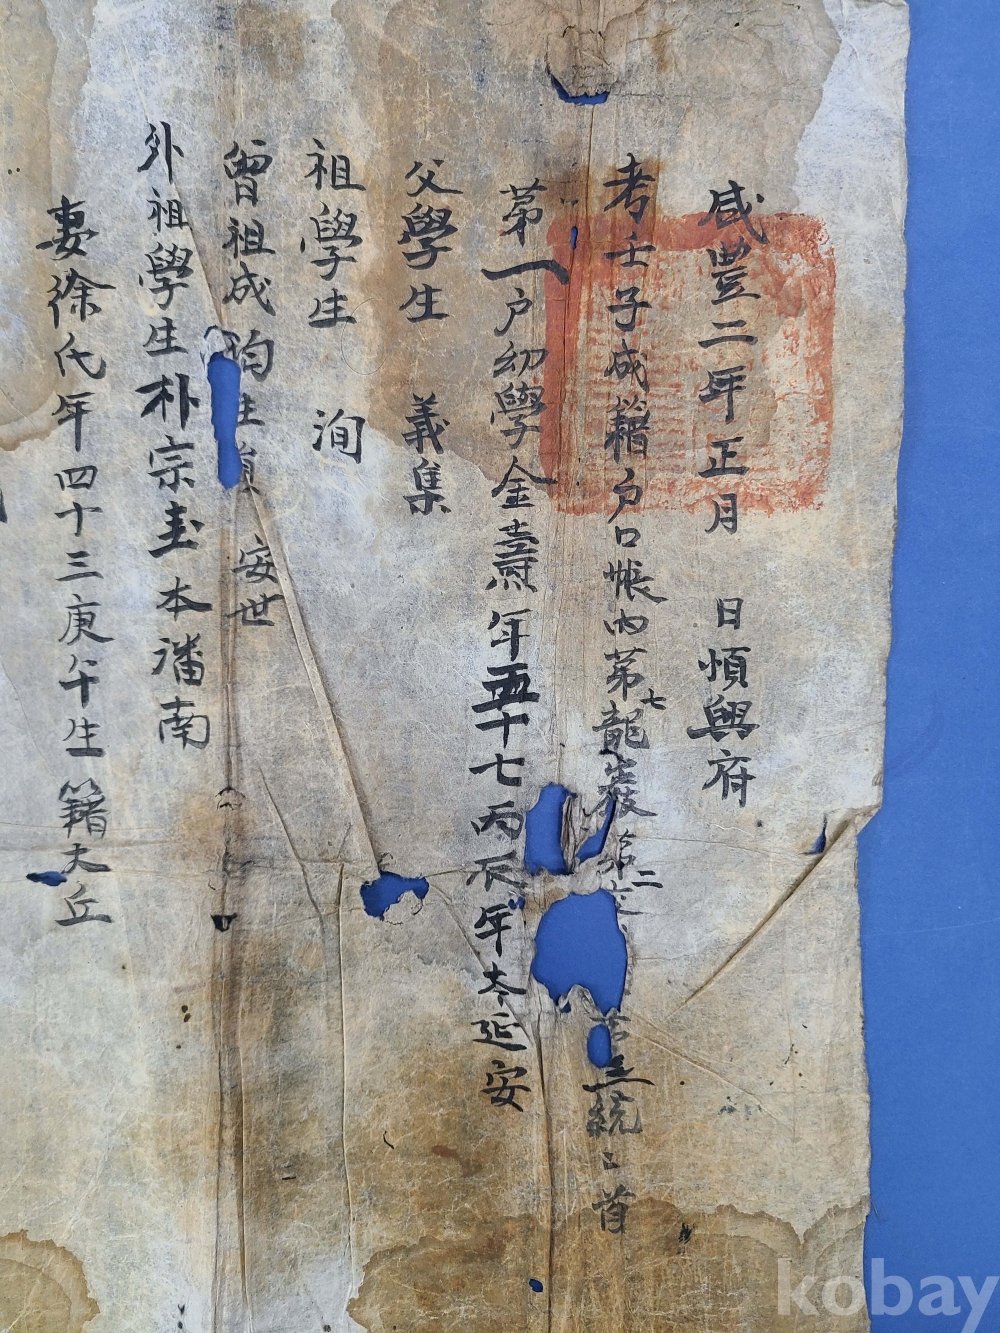 咸豐二年正月 日順興府
考壬子成籍戶口帳內第七龍巖 第二 統二首
第一戶幼學金壽 年五十七丙辰年本延安
父學生 義集
祖學生 洵
曾祖成均生員 安世
外祖學生朴宗圭本潘南
妻徐氏年四十三庚午生籍大丘
kobay